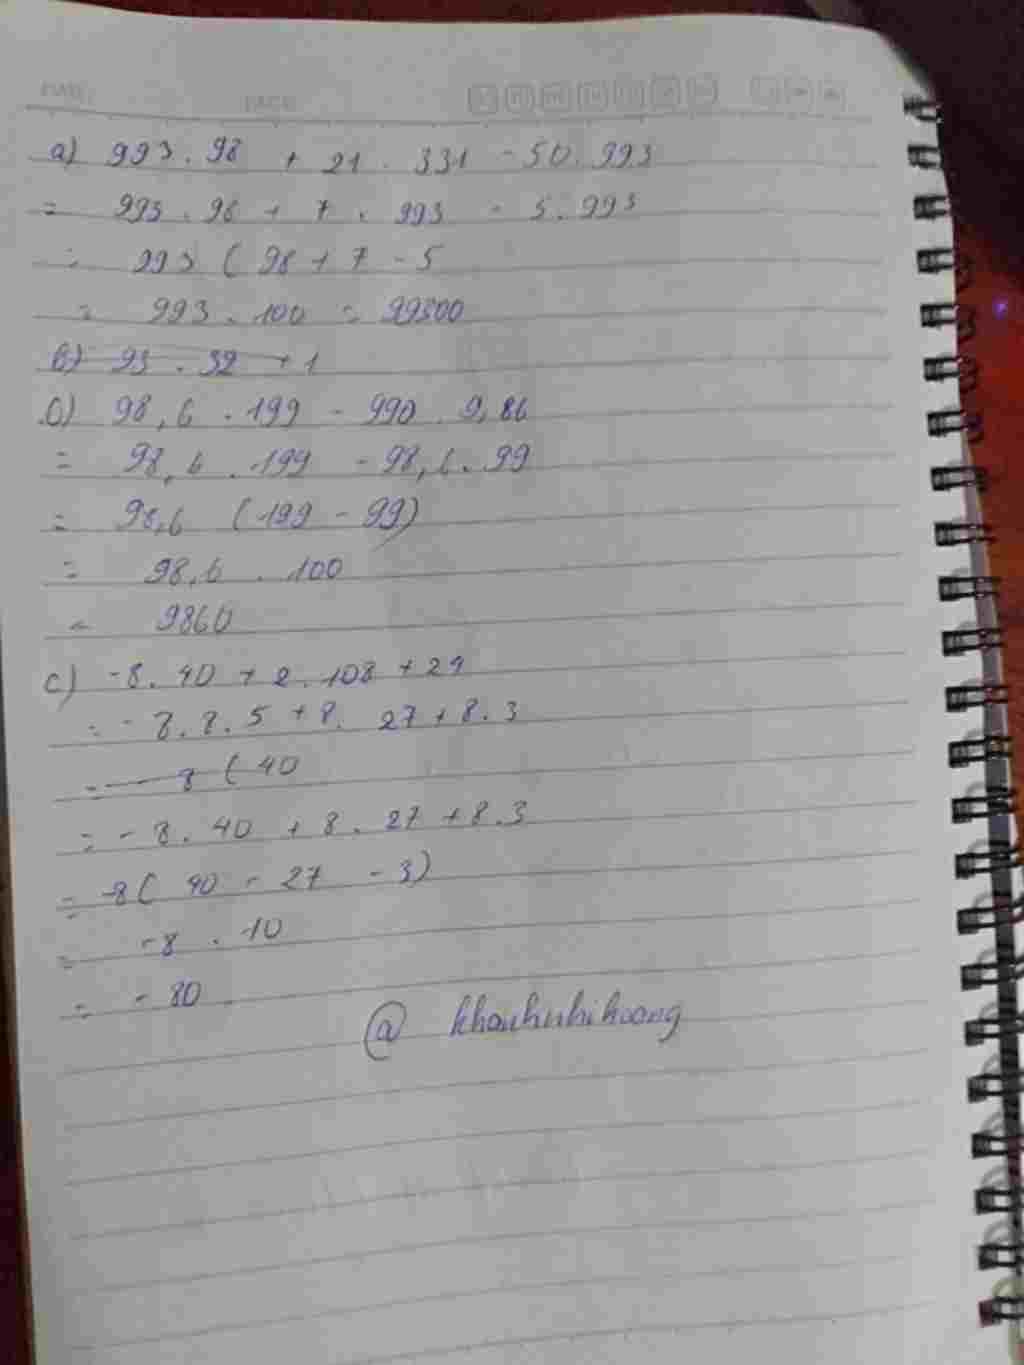 a) 993.98 + 21.331 - 50.993
= 993.98 + 7.993 - 5.993
= 993 (98 + 7 - 5
= 993.100 = 99300
b) 93.32 + 1
b) 98,6.199 - 990.9,86
= 98,6.199 - 98,6.99
= 98,6 (199 - 99)
= 98,6.100
= 9860
c) -8.40 + 2.108 + 24
= -8.8.5 + 8.27 + 8.3
= -8 (40
= -8.40 + 8.27 + 8.3
= -8(40 - 27 - 3)
= -8.10
= -80
@ khanhnhihoang